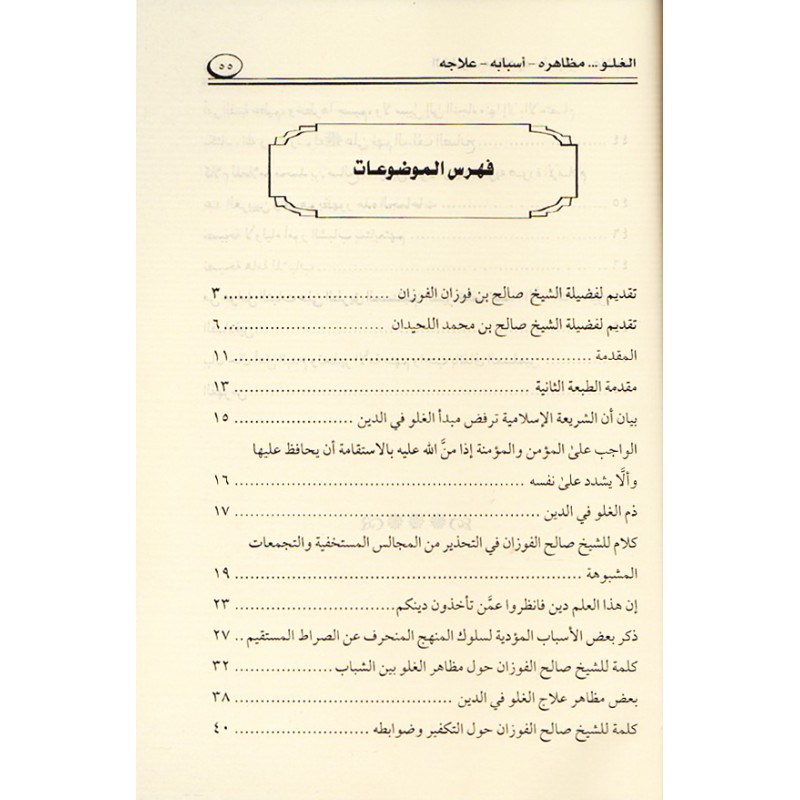 الغلو... مظاهره - أسبابه - علاجه
٥٥
فهرس الموضوعات
تقديم لفضيلة الشيخ صالح بن فوزان الفوزان ........................ ٣
تقديم لفضيلة الشيخ صالح بن محمد اللحيدان ........................ ٦
المقدمة ........................ ١١
مقدمة الطبعة الثانية ........................ ١٣
بيان أن الشريعة الإسلامية ترفض مبدأ الغلو في الدين ........................ ١٥
الواجب علىٰ المؤمن والمؤمنة إذا منَّ الله عليه بالاستقامة أن يحافظ عليها
وألَّا يشدد علىٰ نفسه ........................ ١٦
ذم الغلو في الدين ........................ ١٧
كلام للشيخ صالح الفوزان في التحذير من المجالس المستخفية والتجمعات
المشبوهة ........................ ١٩
إن هذا العلم دين فانظروا عمَّن تأخذون دينكم........................ ٢٣
ذكر بعض الأسباب المؤدية لسلوك المنهج المنحرف عن الصراط المستقيم .. ٢٧
كلمة للشيخ صالح الفوزان حول مظاهر الغلو بين الشباب........................ ٣٢
بعض مظاهر علاج الغلو في الدين ........................ ٣٨
كلمة للشيخ صالح الفوزان حول التكفير وضوابطه ........................ ٤٠